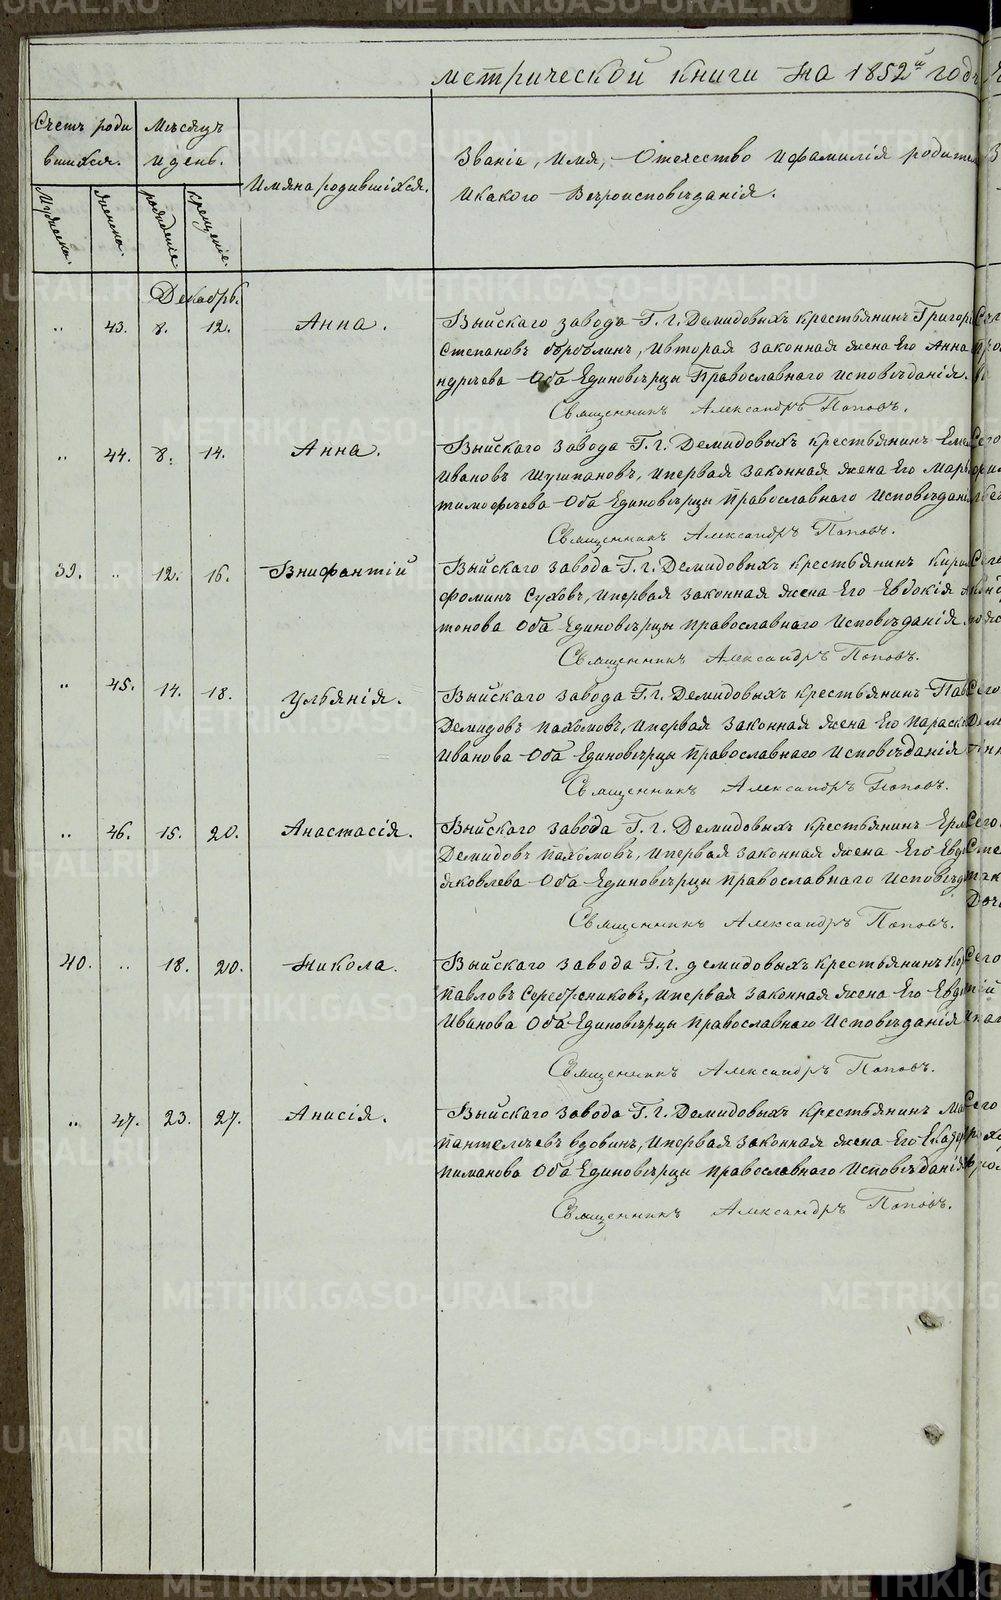 метрической книги на 1852й годъ
Счетъ роди
вшихся.
Мѣсяцъ
и день.
Имяна родившихся.
Званіе, Имя, Отечество и фамилія родител
и какого Вѣроисповѣданія.
Мужеска.
Женска.
рожденіе
крещеніе.
Декабрь.
„ 43. 8. 12. Анна. Выйскаго завода Г. г. Демидовыхъ крестьянинъ Григор
Степановъ, и вторая законная жена Его Анна
ндрѣева Оба Единовѣрцы Православнаго исповѣданія.
Священникъ Александръ Поповъ.
„ 44. 8. 14. Анна. Выйскаго завода Г. г. Демидовыхъ крестьянинъ Емел
Ивановъ Шушпановъ, и первая законная жена Его Марѳ
тимофѣева Оба Единовѣрцы православнаго Исповѣданія
Священникъ Александръ Поповъ.
39. „ 12. 16. Внифантій Выйскаго завода Г. г. Демидовыхъ крестьянинъ Кирил
фоминъ Суховъ, и первая законная жена Его Евдокія
тонова Оба Единовѣрцы православнаго Исповѣданія
Священникъ Александръ Поповъ.
„ 45. 14. 18. Ульянія. Выйскаго завода Г. г. Демидовыхъ крестьянинъ Пав
Демидовъ пахомовъ, и первая законная жена Его параск
Иванова Оба Единовѣрцы православнаго Исповѣданія
Священникъ Александръ Поповъ.
„ 46. 15. 20. Анастасія. Выйскаго завода Г. г. Демидовыхъ крестьянинъ Ерм
Демидовъ пахомовъ, и первая законная жена Его Евд
яковлева Оба Единовѣрцы православнаго Исповѣд
Священникъ Александръ Поповъ.
40. „ 18. 20. Никола. Выйскаго завода Г. г. демидовыхъ крестьянинъ
павловъ Серебрениковъ, и первая законная жена Его Евд
Иванова Оба Единовѣрцы православнаго Исповѣданія
Священникъ Александръ Поповъ.
„ 47. 23. 27. Анисія. Выйскаго завода Г. г. Демидовыхъ крестьянинъ Ма
пантелѣевъ вдовинъ, и первая законная жена Его
пиманова Оба Единовѣрцы православнаго Исповѣданія
Священникъ Александръ Поповъ.
METRIKI.GASO-URAL.RU